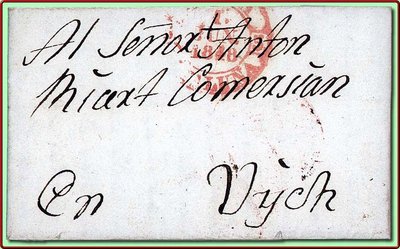 Al Señor Anton
Riart Comersian
En Vych
1848